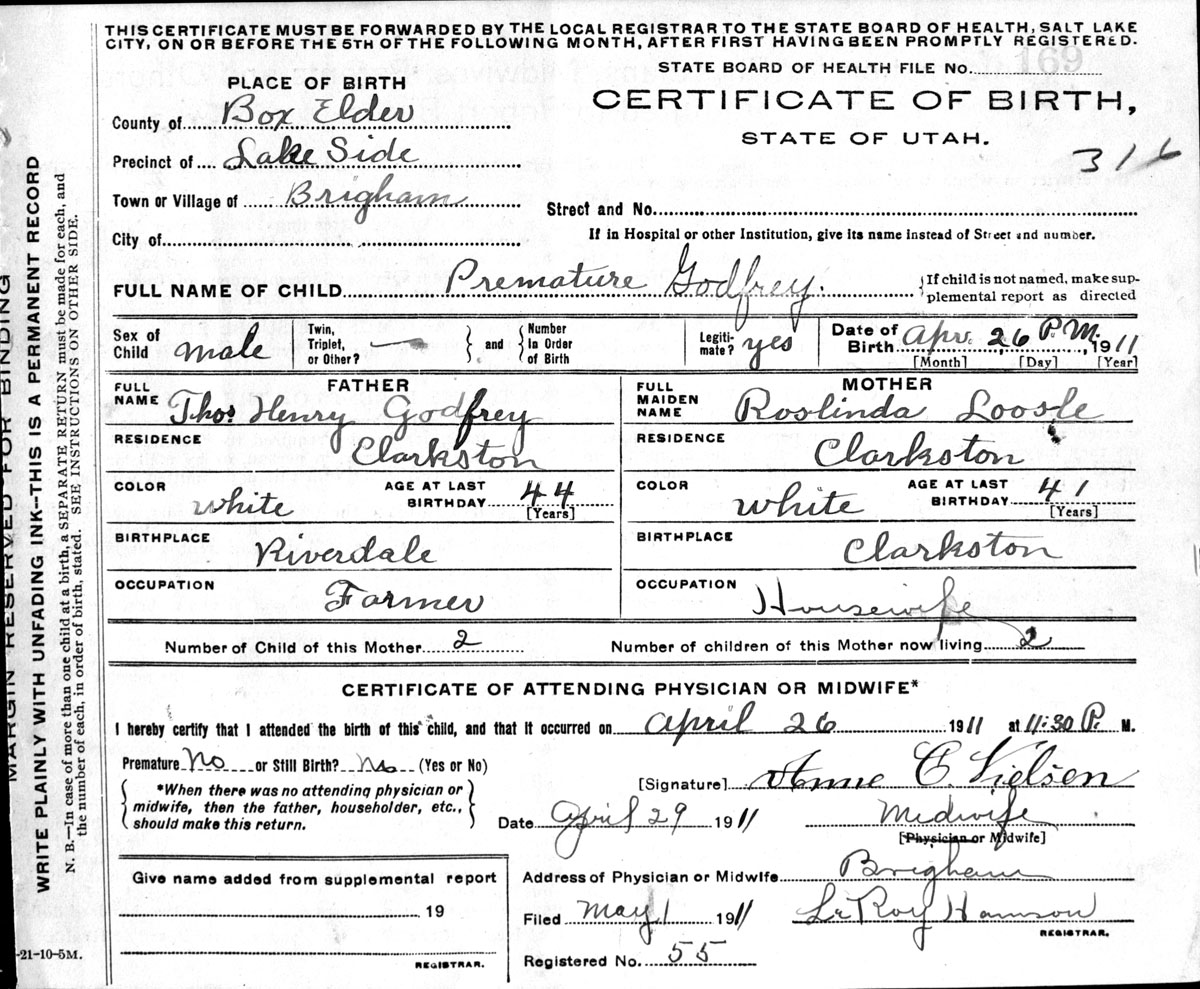 THIS CERTIFICATE MUST BE FORWARDED BY THE LOCAL REGISTRAR TO THE STATE BOARD OF HEALTH, SALT LAKE
CITY, ON OR BEFORE THE 5TH OF THE FOLLOWING MONTH, AFTER FIRST HAVING BEEN PROMPTLY REGISTERED.
STATE BOARD OF HEALTH FILE No. 169
PLACE OF BIRTH
CERTIFICATE OF BIRTH,
STATE OF UTAH.
316
County of Box Elder
Precinct of Lake Side
Town or Village of Brigham
Street and No.
City of
If in Hospital or other Institution, give its name instead of Street and number.
FULL NAME OF CHILD Premature Godfrey. {If child is not named, make sup-
plemental report as directed
Sex of Child male Twin, Triplet, or Other? — } and { Number In Order of Birth Legiti-mate? yes Date of Birth Apr. 26 P.M., 1911
[Month] [Day] [Year]
FATHER
FULL NAME Thos. Henry Godfrey
RESIDENCE Clarkston
COLOR White AGE AT LAST BIRTHDAY 44
[Years]
BIRTHPLACE Riverdale
OCCUPATION Farmer
MOTHER
FULL MAIDEN NAME Roslinda Loosle
RESIDENCE Clarkston
COLOR White AGE AT LAST BIRTHDAY 41
[Years]
BIRTHPLACE Clarkston
OCCUPATION Housewife
Number of Child of this Mother 2 Number of children of this Mother now living 2
CERTIFICATE OF ATTENDING PHYSICIAN OR MIDWIFE*
I hereby certify that I attended the birth of this child, and that it occurred on April 26 1911 at 11:30 P. M.
Premature No or Still Birth? No (Yes or No)
*When there was no attending physician or
midwife, then the father, householder, etc.,
should make this return.
[Signature] Anne C. Nielsen
Date April 29 1911 Midwife
[Physician or Midwife]
Give name added from supplemental report
19
REGISTRAR.
Address of Physician or Midwife Brigham
Filed May 1 1911 LeRoy
REGISTRAR.
Registered No. 55
-21-10-5M.
MARGIN RESERVED FOR BINDING
WRITE PLAINLY WITH UNFADING INK—THIS IS A PERMANENT RECORD
N. B.—In case of more than one child at a birth, a SEPARATE RETURN must be made for each, and
the number of each, in order of birth, stated. SEE INSTRUCTIONS ON OTHER SIDE.